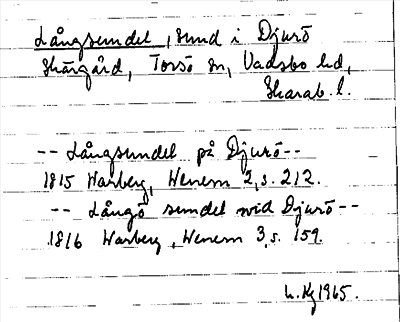 Långsundet, sund i Djurö
Skärgård, Torsö sn, Vadsbo hd,
Skarab. l.
-- Långsundet på Djurö --
1815 Warberg, Wenern 2, s. 212.
-- Långö sundet wid Djurö --
1816 Warberg, Wenern 3, s. 159.
1965.